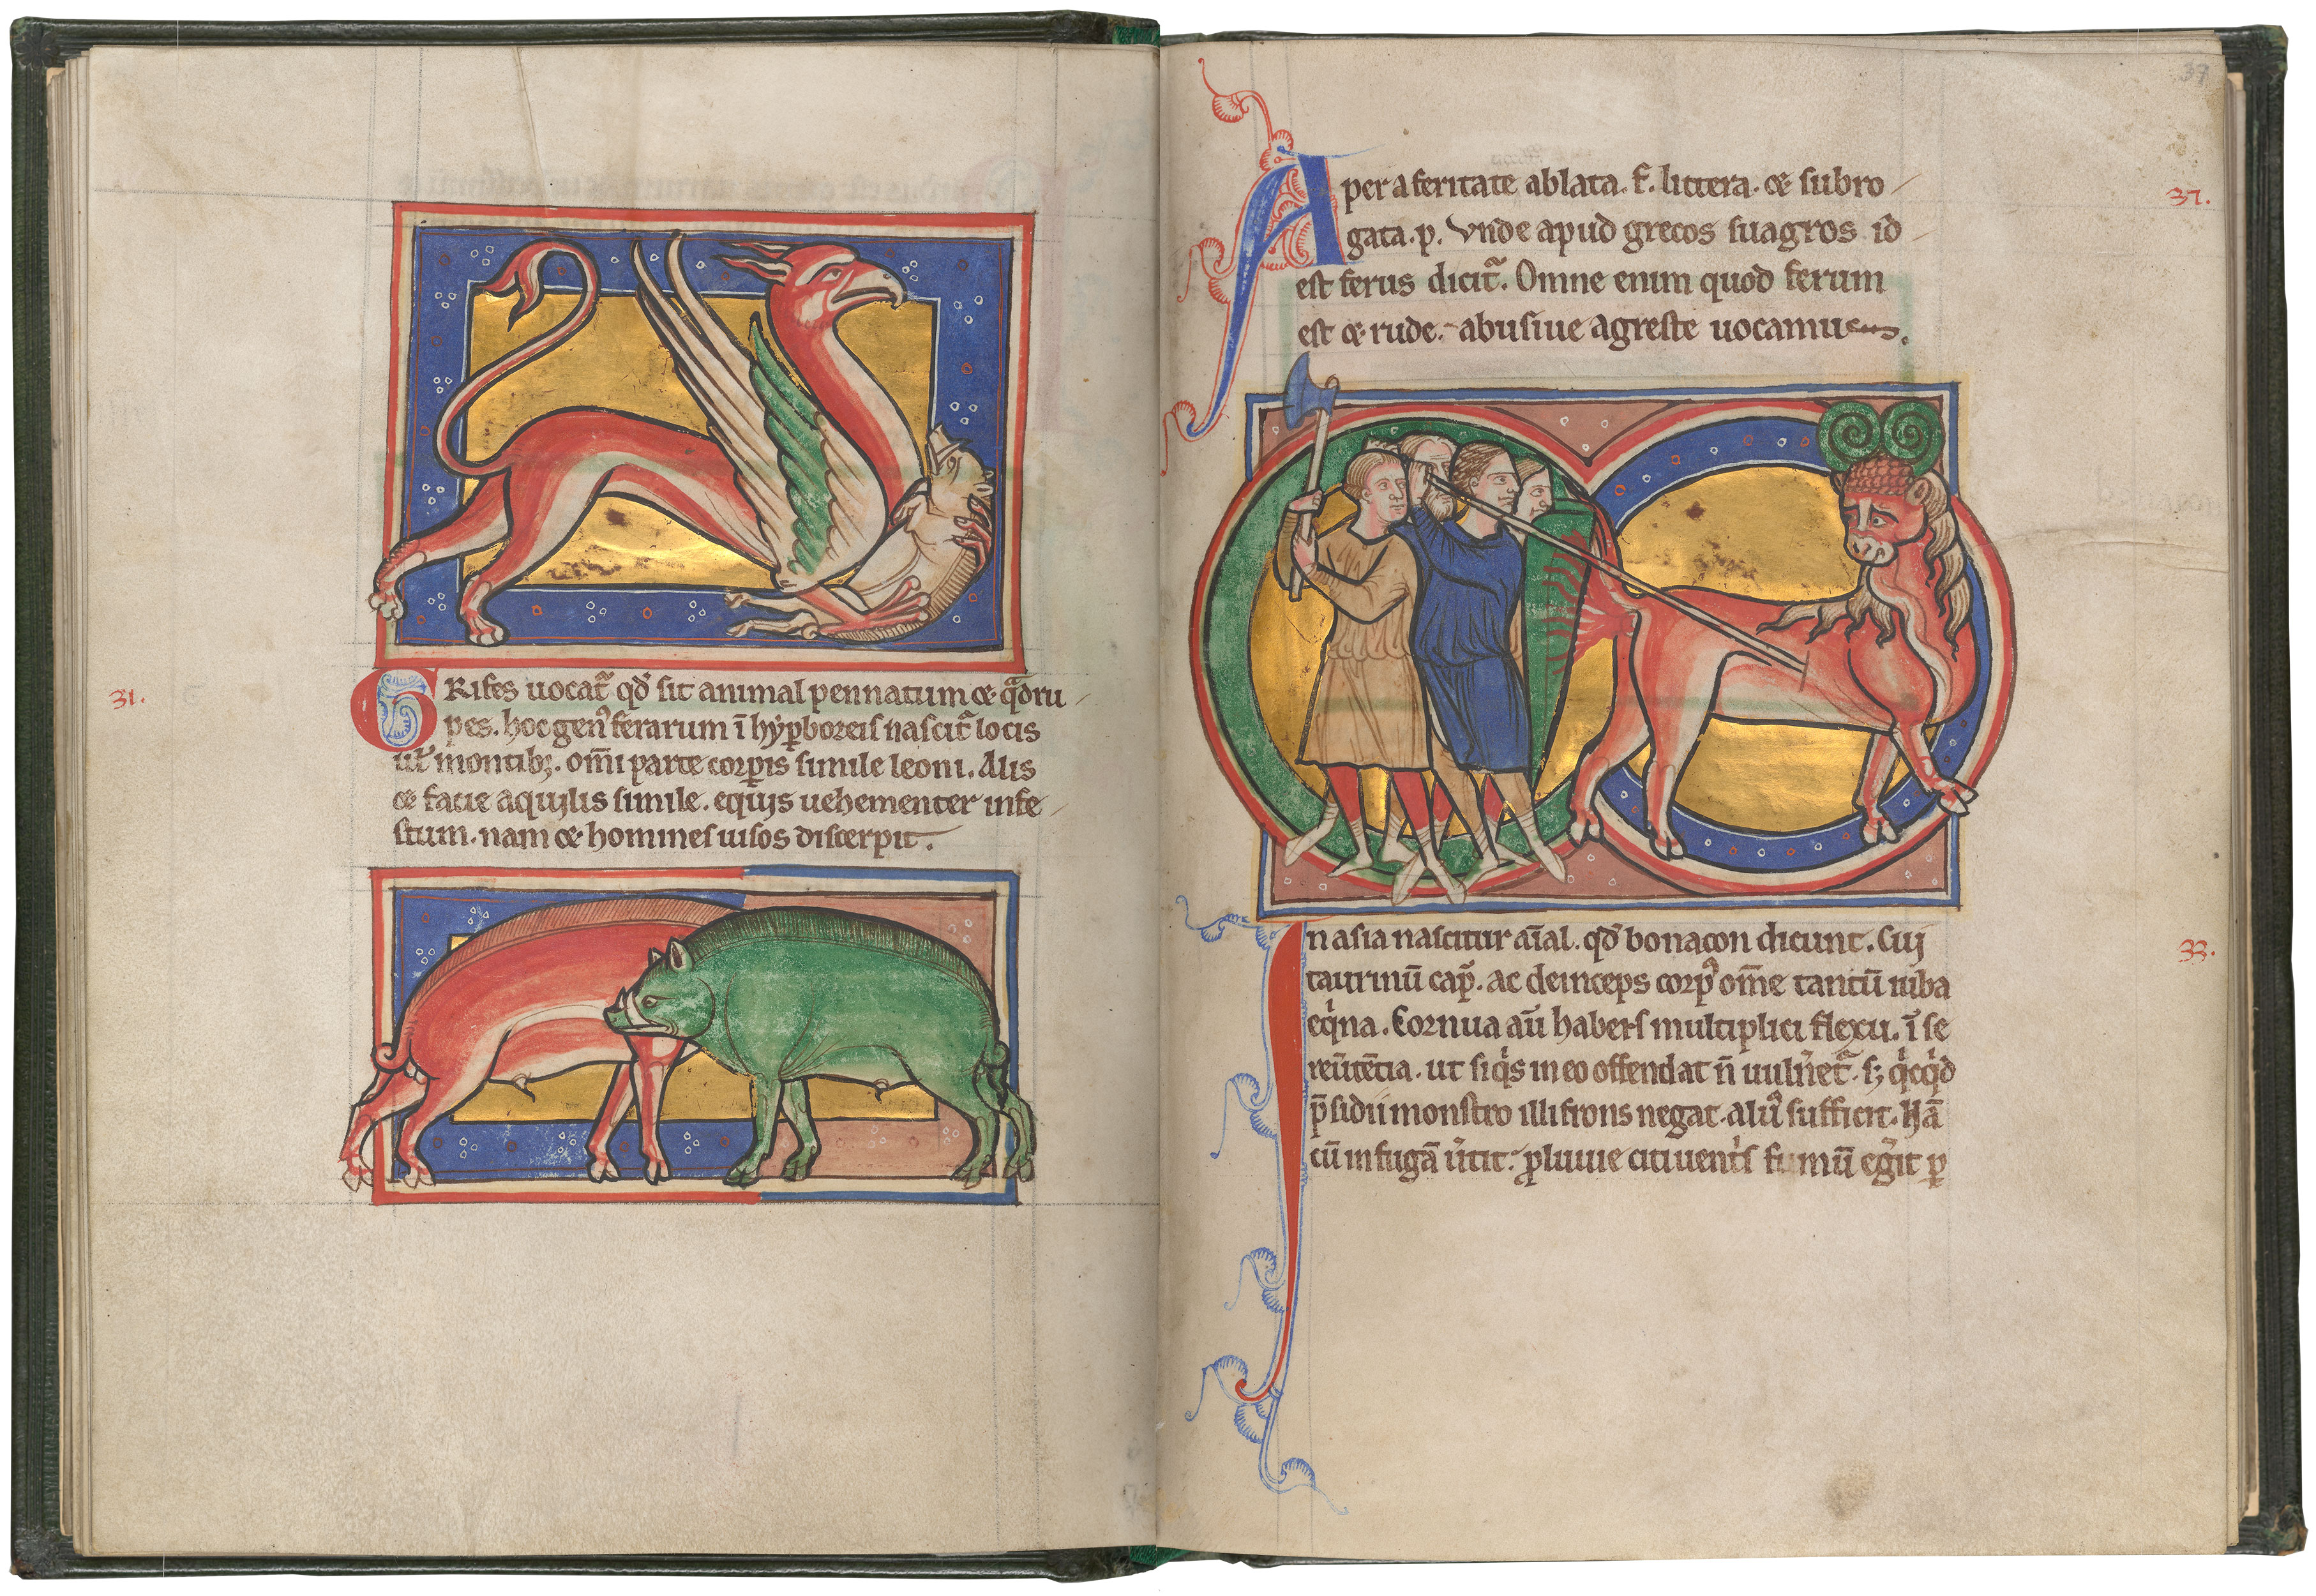 31.
GRifes uocat᷑ qđ sit animal pennatum ⁊ qͣdru
pes. hoc gen᷒ ferarum ī hyꝑboreis nascit᷑ locis
ul᷑ montibꝫ. om̄i parte corꝑis simile leoni. Alis
⁊ facie aquilis simile. equis uehementer infe
stum. nam ⁊ homines uisos discerpit.
37
Aper a feritate ablata. f. littera. ⁊ subro
gata. p. Vnde apud grecos suagros id
est ferus dicit᷑. Omne enim quod ferum
est ⁊ rude. abusiue agreste uocamus.
37.
In asia nascitur aīal. qđ bonacon dicunt. Cui
taurinū cap᷒. ac deinceps corp᷒ om̄e tantū iuba
eqͥna. Cornua aū habens multiplici flexu. ī se
33.
ut si qͥs in eo offendat n̄ uuln̓et᷑. sꝫ qͥcqͥd
p̄sidii monstro illi frons negat. aluus sufficit. Nā
cū in fugā u̓tit. ꝓluuie citi uentͥs fumū eg̓it ꝑ